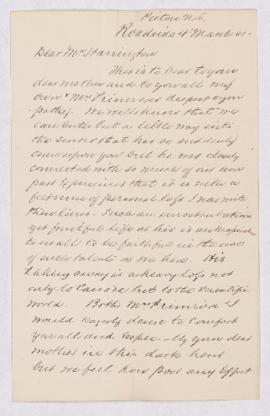 Pictou N.S.
Roadside 4 March
Dear Mr Harrington
This is to bear to you
dear mother and to you all my
own & Mrs Primrose deepest sym
pathy. We well know that we
can enter but a little way into
the sorrow that has so suddenly
come upon you but he was closely
connected with so much of our own
past experience that it is with a
feeling of personal loss I now write
these lines. Such an
yet fruitful life as his is
to us all to be faithful in the use
of such talents as we have. His
taking away is a heavy loss not
only to Canada but to the scientific
world. Both Mrs Primrose & I
would eagerly desire to comfort
you all and especially your dear
mother in this dark hour
but we feel how poor any effort